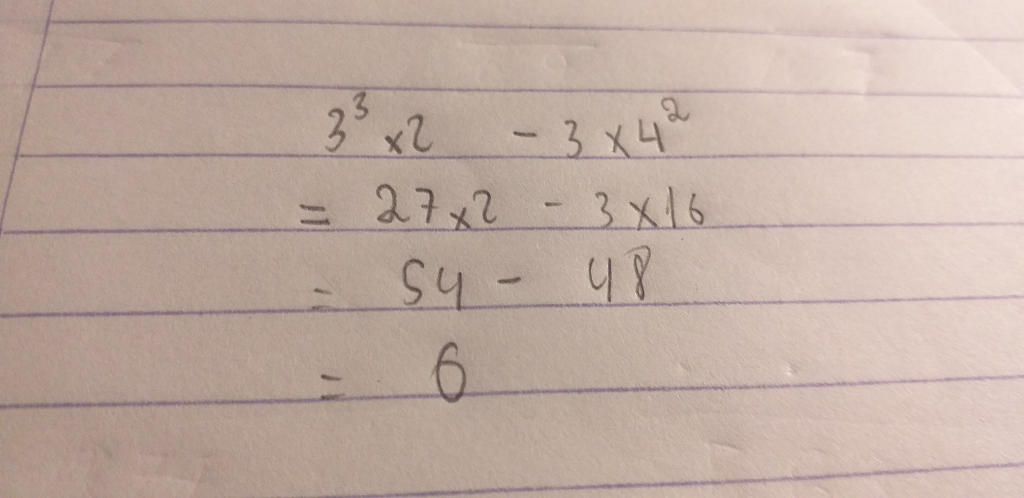 3³ × 2 - 3 × 4²
= 27 × 2 - 3 × 16
= 54 - 48
= 6